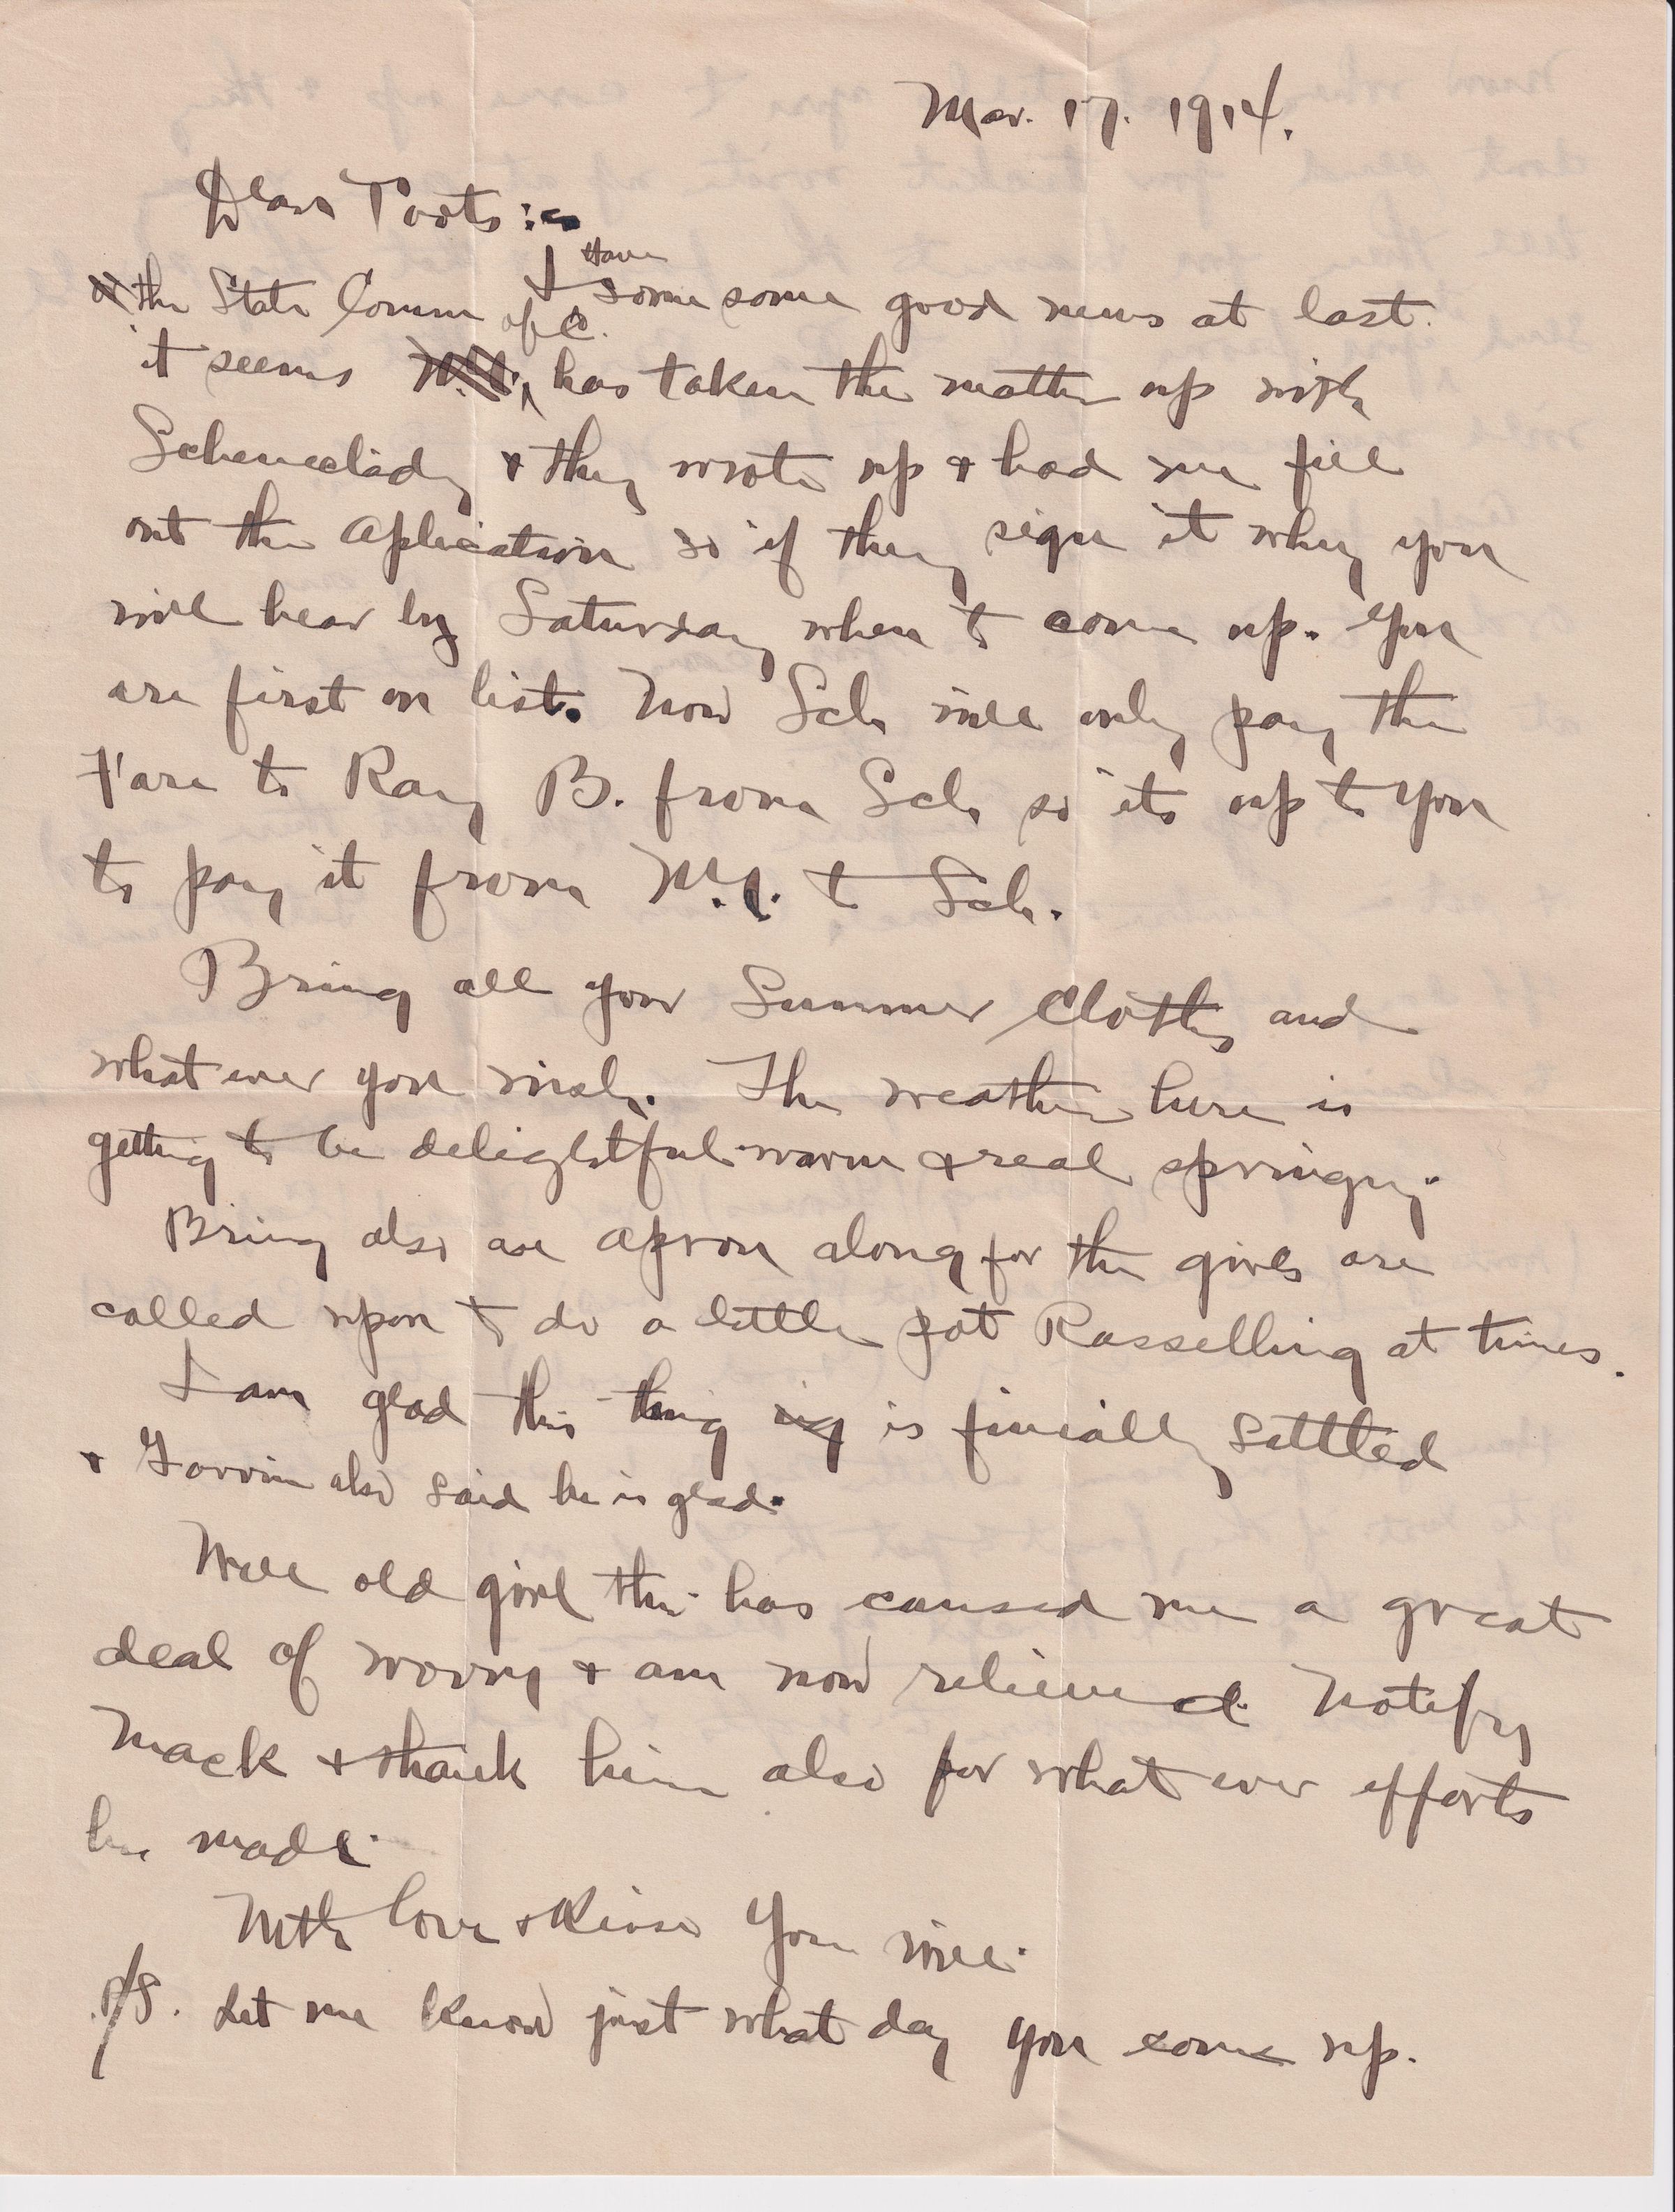 Mar. 17. 1914.
Dear Toots:-
Have
I some some good news at last.
the State Comm of C.
it seems has taken the matter up with
Schenectady & they wrote up & had me fill
out the Aplication so if they sign it why you
will hear by Saturday when to come up. You
are first on list. Now Sch will only pay the
Fare to Ray B. from Sch so its up to you
to pay it from N.Y. to Sch.
Bring all your Summer Cloths and
what ever you wish. The weather here is
getting to be delightful warm & real springy.
Bring also an apron along for the girls are
called upon to do a little pot Rasselling at times.
I am glad this thing is finially settled
& also said he is glad.
Well old girl this has caused me a great
deal of worry & am now relieved. Notify
Mack & thank him also for what ever efforts
he made.
With love & Kisses Your Will.
P.S. Let me know just what day you come up.